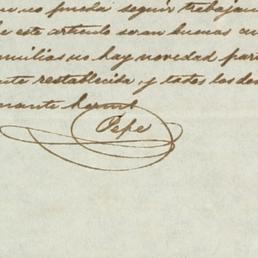 no pueda seguir trabajan
este articulo seran buenas
familias no hay novedad par
nte restablecida y todos los dem
amante herm
Pepe